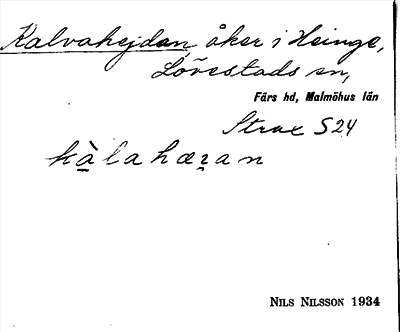 Kalvahejdan, åker i Heinge,
Lövestads sn,
Färs hd, Malmöhus län
Strax S 24
kàlahæran
NILS NILSSON 1934